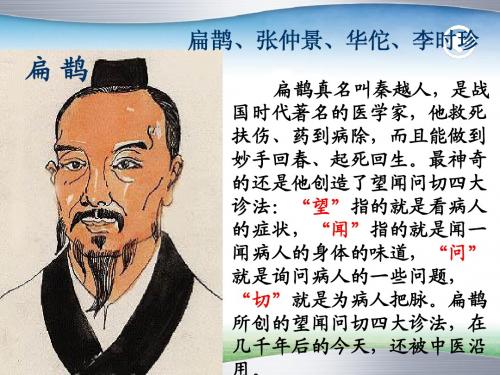 扁鹊、张仲景、华佗、李时珍
扁 鹊
扁鹊真名叫秦越人，是战
国时代著名的医学家，他救死
扶伤、药到病除，而且能做到
妙手回春、起死回生。最神奇
的还是他创造了望闻问切四大
诊法：“望”指的就是看病人
的症状，“闻”指的就是闻一
闻病人的身体的味道，“问”
就是询问病人的一些问题，
“切”就是为病人把脉。扁鹊
所创的望闻问切四大诊法，在
几千年后的今天，还被中医沿
用。